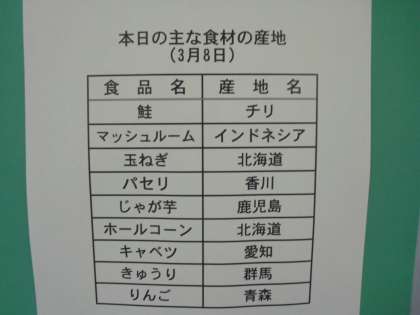 本日の主な食材の産地
(3月8日)
食品名 産地名
鮭 チリ
マッシュルーム インドネシア
玉ねぎ 北海道
パセリ 香川
じゃが芋 鹿児島
ホールコーン 北海道
キャベツ 愛知
きゅうり 群馬
りんご 青森